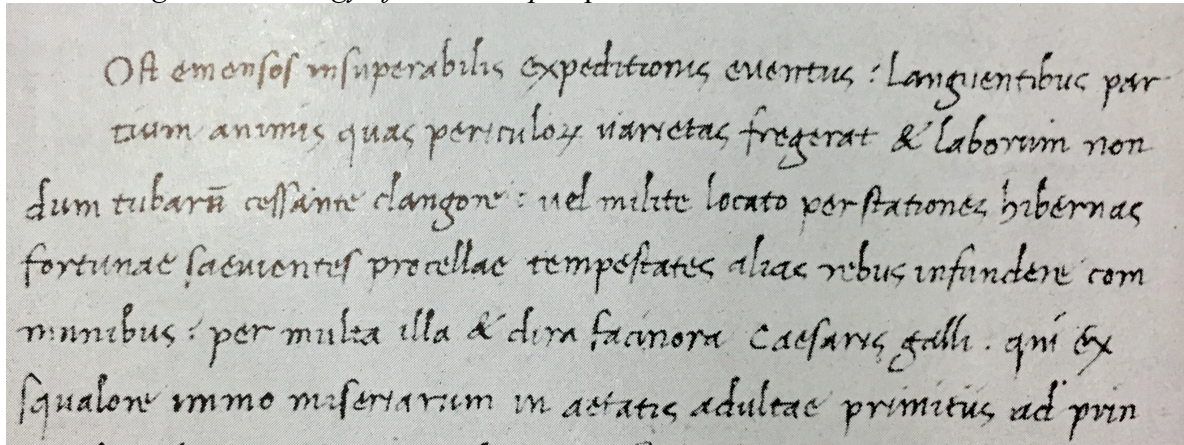 Ost emensos insuperabilis expeditionis eventus : Languentibus par
tium animis quas periculoꝝ varietas fregerat & laborum non
dum tubarū cessante clangore : vel milite locato per stationes hibernas
fortunae saevientes procellae tempestates alias rebus infundere com
munibus : per multa illa & dira facinora Caesaris galli . qui ex
squalore immo miseriarum in aetatis adultae primitiis ad prin